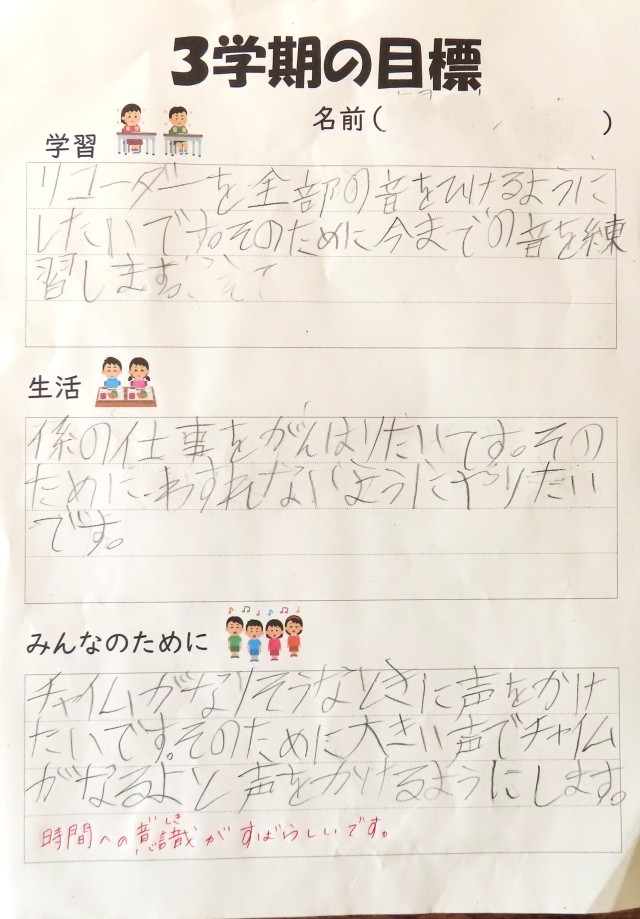 3学期の目標
名前( )
学習
リコーダーを全部の音をひけるように
したいです。そのために今までの音を練
習します。
生活
係の仕事をがんばりたいです。その
ために、わすれないようにやりたい
です。
みんなのために
チャイムがなりそうなときに声をかけ
たいです。そのために大きい声でチャイム
がなるよと声をかけるようにします。
時間への意識がすばらしいです。
いしき